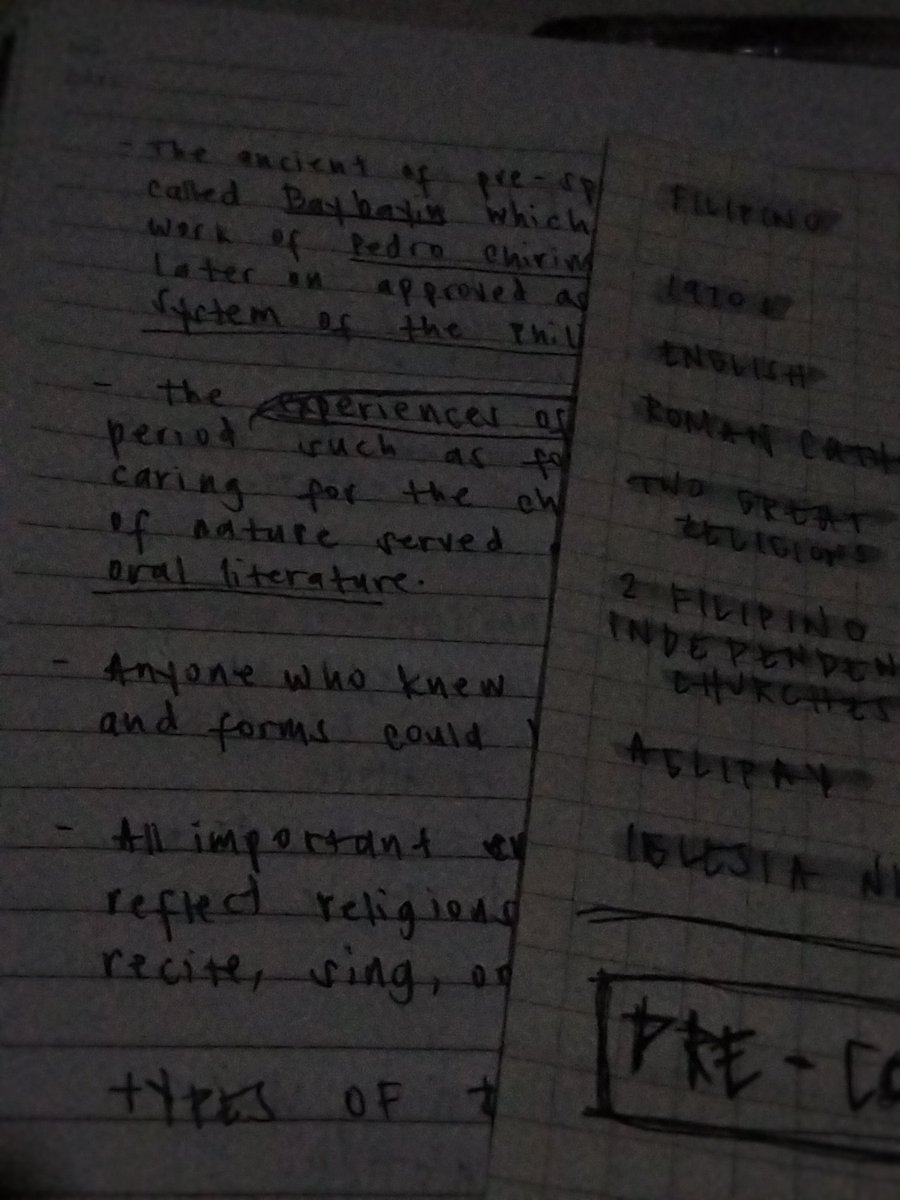 - The ancient of pre-sp
called Baybayin which
work of Pedro chirin
later on approved as
system of the Phil
- the experiences of
period such as fo
caring for the ch
of nature served
oral literature.
- Anyone who knew
and forms could
- All important ev
reflect religious
recite, sing, or
TYPES OF t
FILIPINO
ENGLISH
ROMAN CATH
TWO GREAT
RELIGIONS
2 FILIPINO
INDEPENDEN
CHURCHES
AGLIPAY
IGLESIA NI
PRE - CO